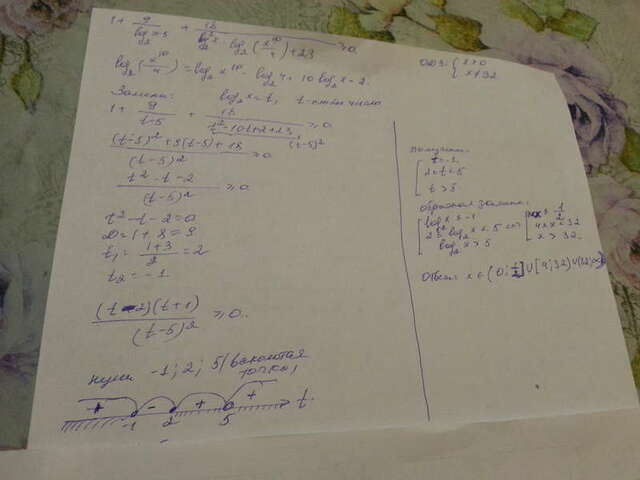 1 + 9/(log₂x-5) + 18/(log₂²x - log₂(x¹⁰/4) + 23) ≥ 0
log₂(x¹⁰/4) = log₂x¹⁰ - log₂4 = 10 log₂x - 2.
Замена: log₂x = t, t-
1 + 9/(t-5) + 18/(t²-10t+2+23) ≥ 0
(t-5)²
((t-5)² + 9(t-5) + 18)/(t-5)² ≥ 0
(t²-t-2)/(t-5)² ≥ 0
t²-t-2=0
D=1+8=9
t₁ = (1+3)/2 = 2
t₂ = -1
(t-2)(t+1)/(t-5)² ≥ 0.
нули -1; 2; 5 (выколотая
точка)
+ - + + t.
-1 2 5
ОДЗ: { x>0
x≠32
получим:
t≤-1
2≤t<5
t>5
Обратная замена:
[ log₂x ≤ -1
2 ≤ log₂x < 5 <=>
log₂x > 5
[ x ≤ 1/2
4≤x<32
x > 32.
Ответ: x ∈ (0; 1/2] ∪ [4; 32) ∪ (32; ∞)